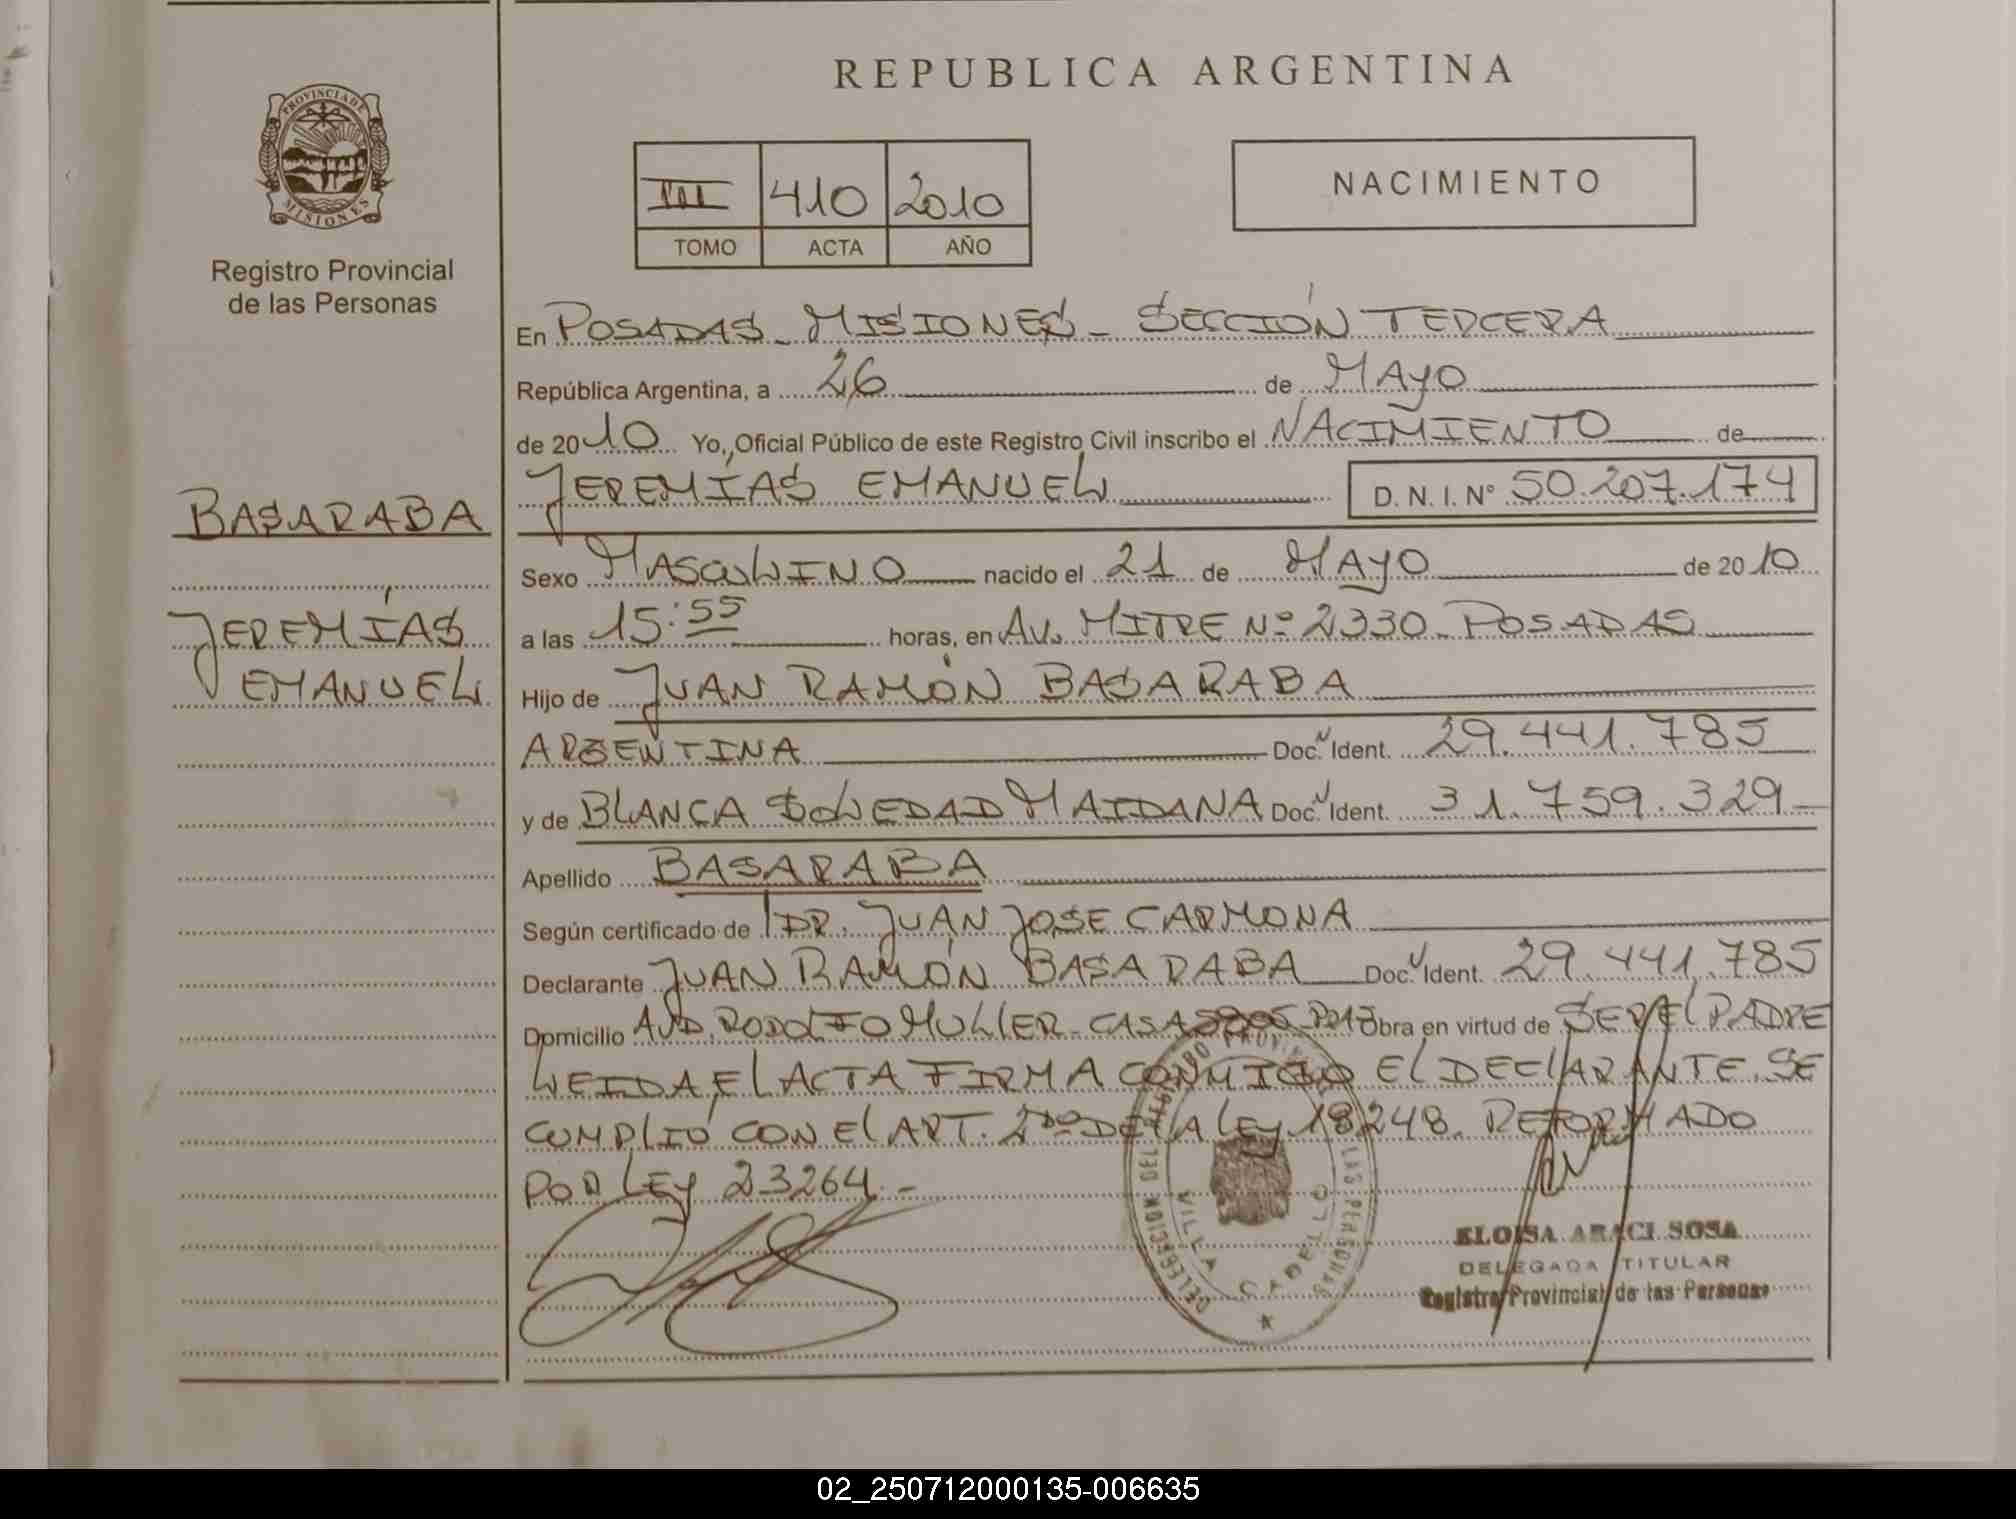 REPUBLICA ARGENTINA
PROVINCIA DE
MISIONES
Registro Provincial
de las Personas
410 2010
TOMO ACTA AÑO
NACIMIENTO
En POSADAS - MISIONES - SECCIÓN TERCERA
República Argentina, a 26 de MAYO
de 2010 Yo, Oficial Público de este Registro Civil inscribo el NACIMIENTO de
JEREMÍAS EMANUEL D.N.I. Nº 50.207.174
BASARABA
JEREMÍAS
EMANUEL
Sexo MASCULINO nacido el 21 de MAYO de 2010
a las 15:55 horas, en AV. MITRE Nº 2330 - POSADAS
Hijo de JUAN RAMÓN BASARABA
ARGENTINA Doc. Ident. 29.441.785
y de BLANCA SOLEDAD MAIDANA Doc. Ident. 31.759.329 -
Apellido BASARABA
Según certificado de DR. JUAN JOSE CARMONA
Declarante JUAN RAMÓN BASARABA Doc. Ident. 29.441.785
Domicilio AVD. RODOLFO MULLER - CASA Obra en virtud de SER EL PADRE
LEIDA EL ACTA FIRMA CONMIGO EL DECLARANTE. SE
CUMPLIÓ CON EL ART. 2do DE LA LEY 18248. REFORMADO
POR LEY 23264. -
DELEGACION DEL REGISTRO PROVINCIAL LAS PERSONAS
VILLA CABELLO
ELOISA ARACI SOSA
DELEGADA TITULAR
Registro Provincial de las Personas
02_250712000135-006635